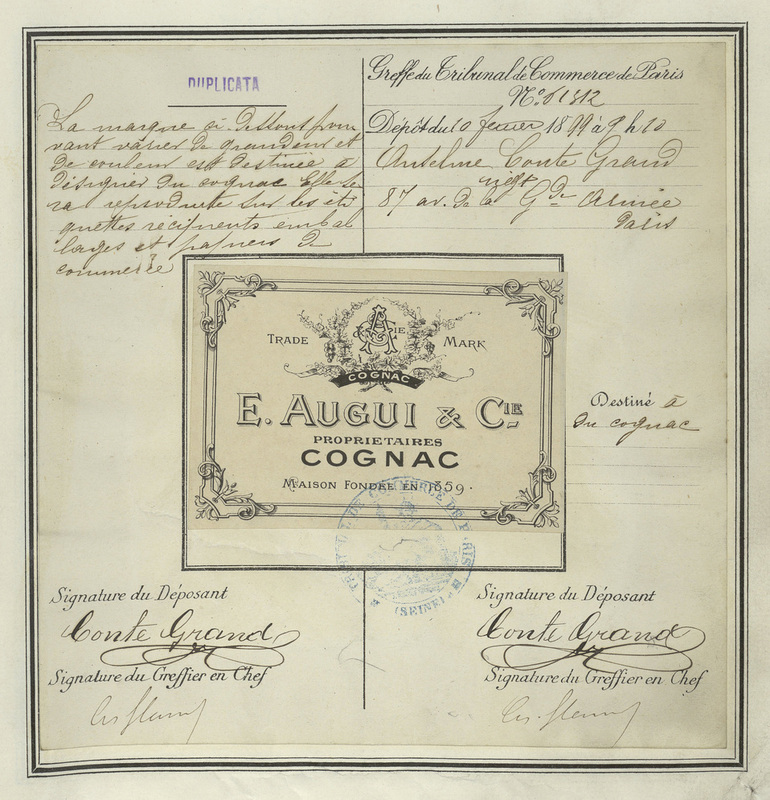 DUPLICATA
La marque ci-dessous pou
vant varier de grandeur et
de couleur est destinée à
désigner du cognac Elle se
ra reproduite sur les éti
quettes récipients embal
lages et papiers de
commerce
Greffe du Tribunal de Commerce de Paris
N° 61312
Dépôt du 10 février 1899 à 9 h 10
Anselme Conte Grand
négt
87 av. de la Gde Armée
Paris
TRADE MARK
CIE
COGNAC
E. AUGUI & CIE
PROPRIETAIRES
COGNAC
MAISON FONDÉE EN 1859.
TRIBUNAL DE COMMERCE DE PARIS
(SEINE)
Destiné à
du cognac
Signature du Déposant
Conte Grand
Signature du Greffier en Chef
Signature du Déposant
Conte Grand
Signature du Greffier en Chef